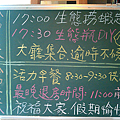 17:00 生態撈蝦
17:30 生態航
大廳集合逾時不候
活力早餐 8:30-9:30
最晚退房時間 11:00
祝福大家 假期愉